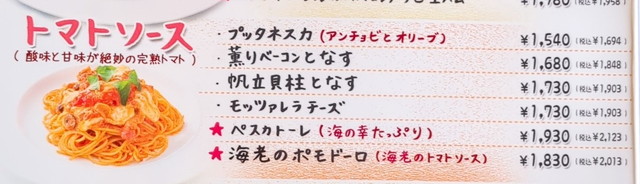 ¥1,780 (税込¥1,958)
トマトソース
( 酸味と甘味が絶妙の完熟トマト )
・プッタネスカ (アンチョビとオリーブ) ¥1,540 (税込¥1,694)
・薫りベーコンとなす ¥1,680 (税込¥1,848)
・帆立貝柱となす ¥1,730 (税込¥1,903)
・モッツァレラチーズ ¥1,730 (税込¥1,903)
★ペスカトーレ (海の幸たっぷり) ¥1,930 (税込¥2,123)
★海老のポモドーロ (海老のトマトソース) ¥1,830 (税込¥2,013)